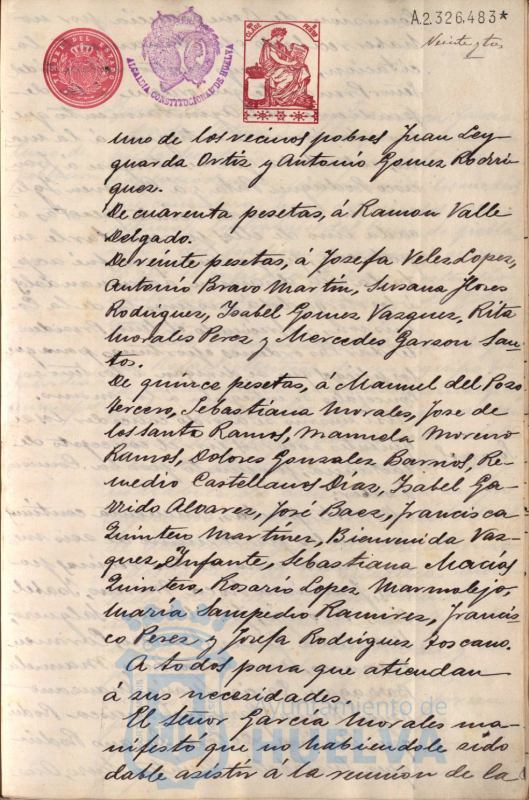 A.2.326,483*
Veinte y tres
TIMBRE DEL ESTADO
ALCALDIA CONSTITUCIONAL DE HUELVA
uno de los vecinos pobres Juan Ley
guarda Ortiz y Antonio Gomez Rodri
guez.
De cuarenta pesetas, á Ramon Valle
Delgado.
De veinte pesetas, á Josefa Velez Lopez,
Antonio Bravo Martín, Susana Flores
Rodriguez, Isabel Gomez Vazquez, Rita
Morales Perez y Mercedes Garzon San-
tos.
De quince pesetas, á Manuel del Pozo
Tercero, Sebastiana Morales, Jose de
los Santos Ramos, Manuela Moreno
Ramos, Dolores Gonzalez Barrios, Re-
medio Castellanos Díaz, Isabel Ga-
rrido Alvarez, José Baez, Francisca
Quintero Martínez, Bienvenida Vaz-
quez Infante, Sebastiana Macías
Quintero, Rosario Lopez Marmolejo,
María Sampedro Ramirez, Francis-
co Perez y Josefa Rodriguez Toscano.
A todos para que atiendan
á sus necesidades.
El Señor García Morales ma-
nifestó que no habiendole sido
dable asistir á la reunión de la
Ayuntamiento de
HUELVA